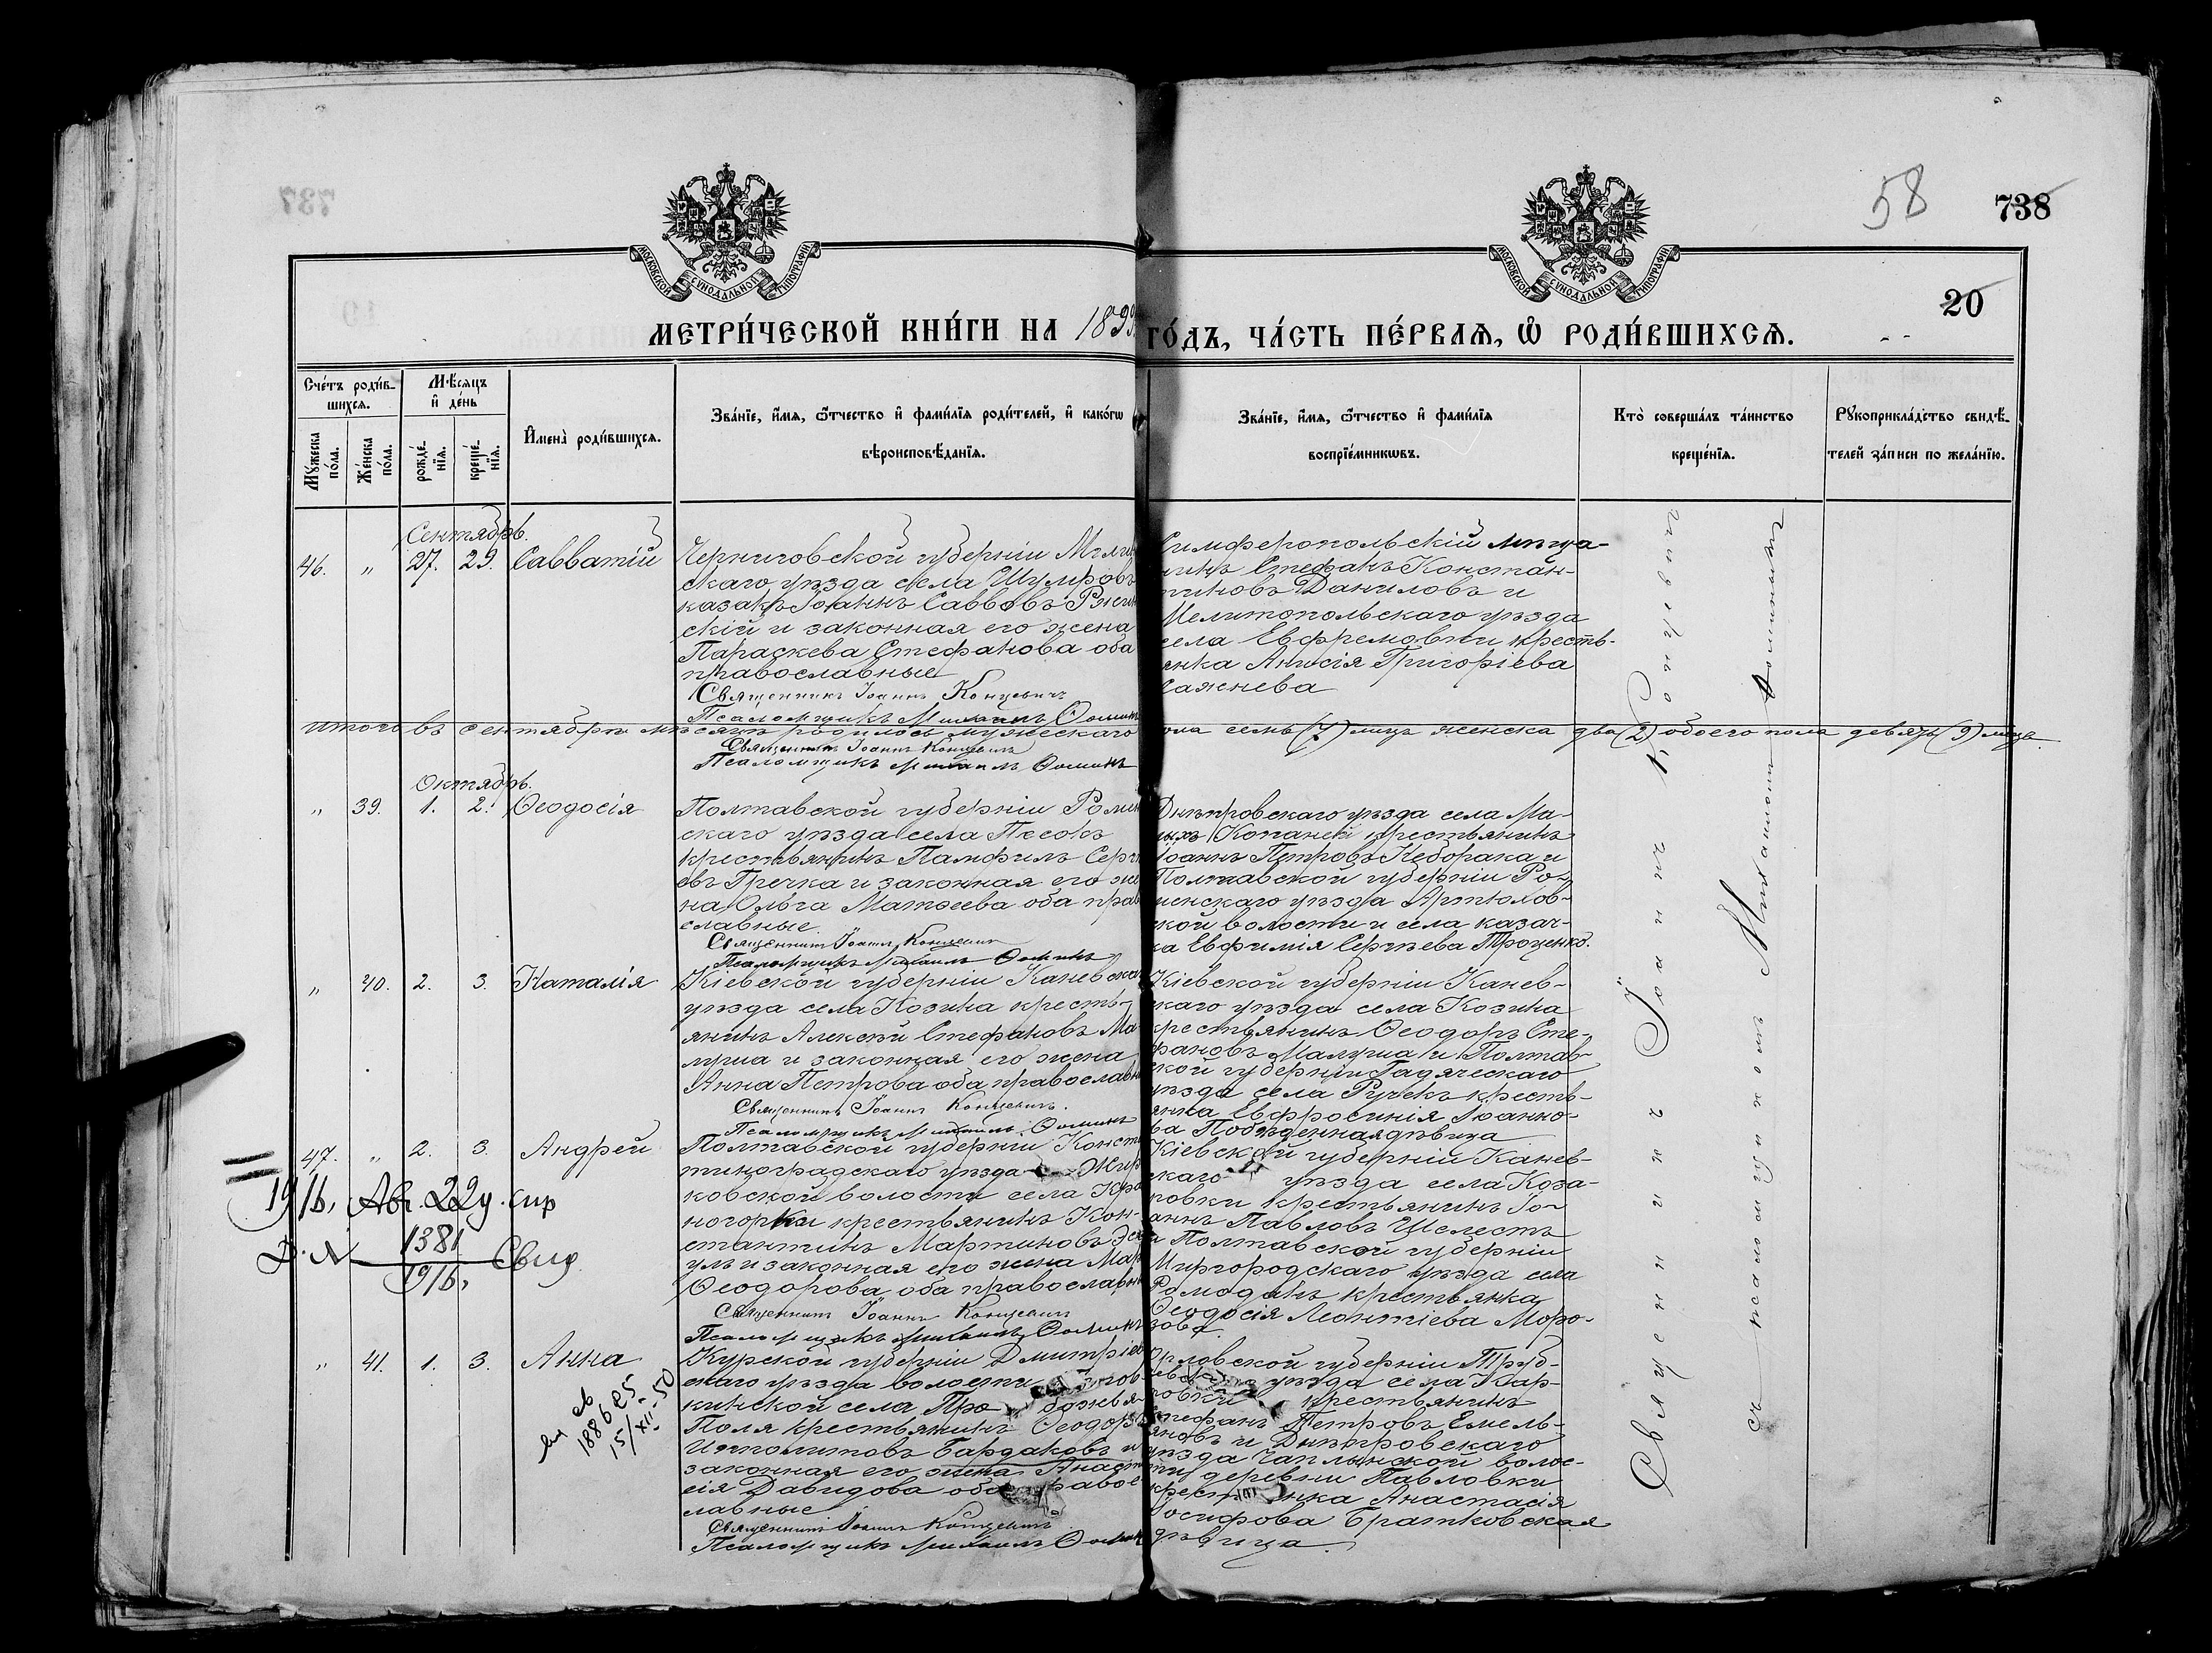 737
58
738
20
МОСКОВСКОЙ СУНОДАЛЬНОЙ ТИПОГРАФІИ
МОСКОВСКОЙ СУНОДАЛЬНОЙ ТИПОГРАФІИ
МЕТРИ́ЧЕСКОЙ КНИ́ГИ НА 1899
ГО́ДЪ, ЧА́СТЬ ПЕ́РВАѦ, Ѡ РОДИ́ВШИХСѦ.
Сче́тъ роди́в-
шихсѧ.
Мѣ́сяцъ
и де́нь
Мꙋ́жеска
по́ла.
Же́нска
по́ла.
рожде́-
нїѧ.
креще́-
нїѧ.
Имена̀ роди́вшихсѧ.
Зва́нїе, и́мѧ, ѻ҆́тчество и фами́лїѧ роди́телей, и како́гѡ
вѣроисповѣ́данїѧ.
Зва́нїе, и́мѧ, ѻ҆́тчество и фами́лїѧ
воспрїе́мникѡвъ.
Кто̀ соверша́лъ та́инство
креще́нїѧ.
Рꙋкоприкла́дство свидѣ́-
телей за́писи по жела́нїю.
Сентябрь.
46. „ 27. 29. Савватій
Черниговской губерніи Мгли
скаго уѣзда села
казакъ Іоаннъ Саввовъ
скій и законная его жена
Параскева Стефанова оба
православные
Священникъ Іоаннъ Концевичъ
Псаломщикъ Михаилъ Ѳоминъ
Симферопольскій мѣща-
нинъ Стефанъ Констан-
тиновъ Даниловъ и
Мелитопольскаго уѣзда
села Ефремовки кресть-
янка Анисія Григоріева
Саженева
итого въ сентябрѣ мѣсяцѣ родилось мужескаго
пола семь (7) лицъ женска два (2) обоего пола девять (9) лицъ
Священникъ Іоаннъ Концевичъ
Псаломщикъ Михаилъ Ѳоминъ
Октябрь.
„ 39. 1. 2. Ѳеодосія
Полтавской губерніи Ромен
скаго уѣзда села Песокъ
крестьянинъ Памфилъ Серг
евъ Гречка и законная его же
на Ольга Матѳеева оба пра
славные.
Священникъ Іоаннъ Концевичъ
Псаломщикъ Михаилъ Ѳоминъ
Днѣпровскаго уѣзда села Ма-
лыхъ Копаней крестьянинъ
Іоаннъ Петровъ Кеборака и
Полтавской губерніи Ро-
менскаго уѣзда Артюхов-
ской волости и села казач-
ка Евфимія Сергѣева Троценко.
„ 40. 2. 3. Наталія
Кіевской губерніи Каневска
уѣзда села Козина кресть-
янинъ Алексѣй Стефановъ Ма-
муша и законная его жена
Анна Петрова оба православн
Священникъ Іоаннъ Концевичъ.
Псаломщикъ Михаилъ Ѳоминъ
Кіевской губерніи Канев-
скаго уѣзда села Козина
крестьянинъ Ѳеодоръ Сте-
фановъ Мамуша и Полтав-
ской губерніи Гадячскаго
уѣзда села Ручекъ кресть-
янка Евфросинія Іоанно-
ва дѣвица
47. „ 2. 3. Андрей
1916, Авг. 22 д.
1381
1916,
Полтавской губерніи Конст
тиноградскаго уѣзда
ковской волости села
ногорки крестьянинъ Кон-
стантинъ Мартиновъ
улъ и законная его жена Мар
Ѳеодорова оба православн
Священникъ Іоаннъ Концевичъ
Псаломщикъ Михаилъ Ѳоминъ
Кіевской губерніи Канев-
скаго уѣзда села Коза-
ровки крестьянинъ Іо-
аннъ Павловъ Шелестъ
и Полтавской губерніи
Миргородскаго уѣзда села
Ромоданъ крестьянка
Ѳеодосія Леонтіева Моро-
зова.
„ 41. 1. 3. Анна
188625
15/XII-50
Курской губерніи Дмитріев
скаго уѣзда волости
кинской села
Поля крестьянинъ Ѳеодоръ
Ипполитовъ Бардаковъ и
законная его жена Анаста
сія Давидова оба правос
лавные
Священникъ Іоаннъ Концевичъ
Псаломщикъ Михаилъ Ѳоминъ
Орловской губерніи Труб-
чевскаго уѣзда села
крестьянинъ
Стефанъ Петровъ Емель-
яновъ и Днѣпровскаго
уѣзда Чаплынской волос-
ти деревни Павловки
крестьянка Анастасія
Іосифова Братковская
дѣвица.
Священникъ Іоаннъ Концевичъ
съ псаломщикомъ Михаиломъ Ѳоминымъ